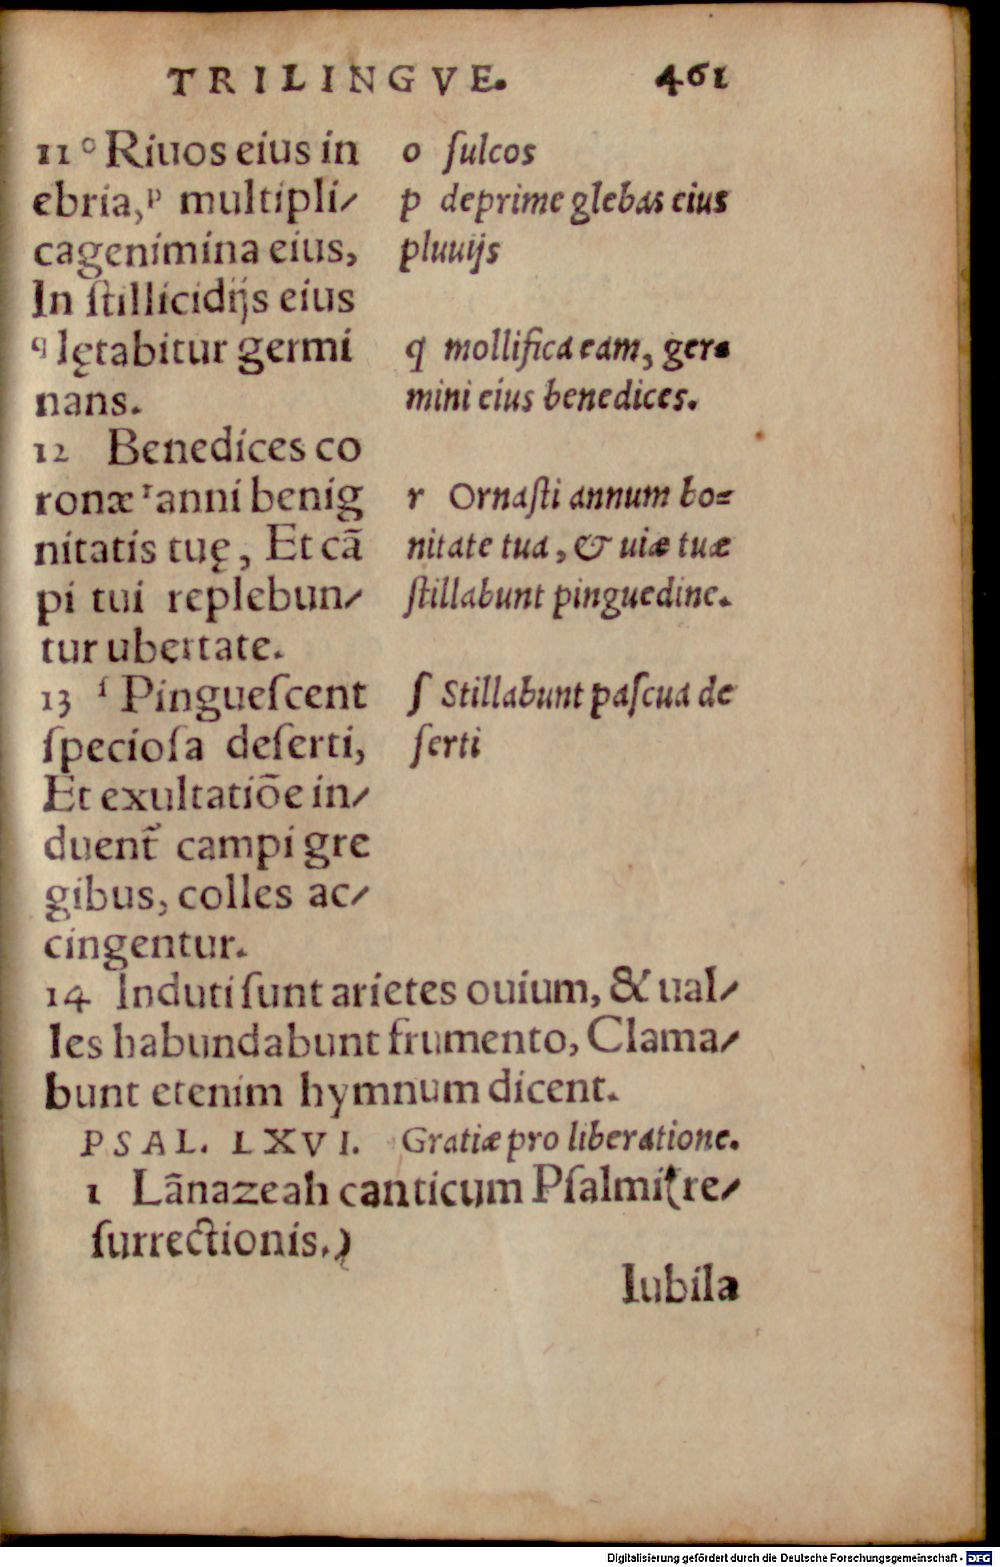 TRILINGVE. 461
11 ᵒ Riuos eius in
ebria,ᵖ multipli⸗
cagenimina eius,
In ſtillicidijs eius
ᑫ lętabitur germi
nans.
12 Benedices co
ronæ ʳanni benig
nitatis tuę, Et cā
pi tui replebun⸗
tur ubertate.
13 ſ Pingueſcent
ſpecioſa deſerti,
Et exultatiōe in⸗
duent̃ campi gre
gibus, colles ac⸗
cingentur.
o ſulcos
p deprime glebas eius
pluuijs
q mollifica eam, ger⸗
mini eius benedices.
r Ornaſti annum bo⸗
nitate tua, & uiæ tuæ
ſtillabunt pinguedine.
ſ Stillabunt paſcua de
ſerti
14 Induti ſunt arietes ouium, & ual⸗
les habundabunt frumento, Clama⸗
bunt etenim hymnum dicent.
PSAL. LXVI. Gratiæ pro liberatione.
1 Lānazeah canticum Pſalmi(re⸗
ſurrectionis.)
Iubila
Digitalisierung gefördert durch die Deutsche Forschungsgemeinschaft - DFG